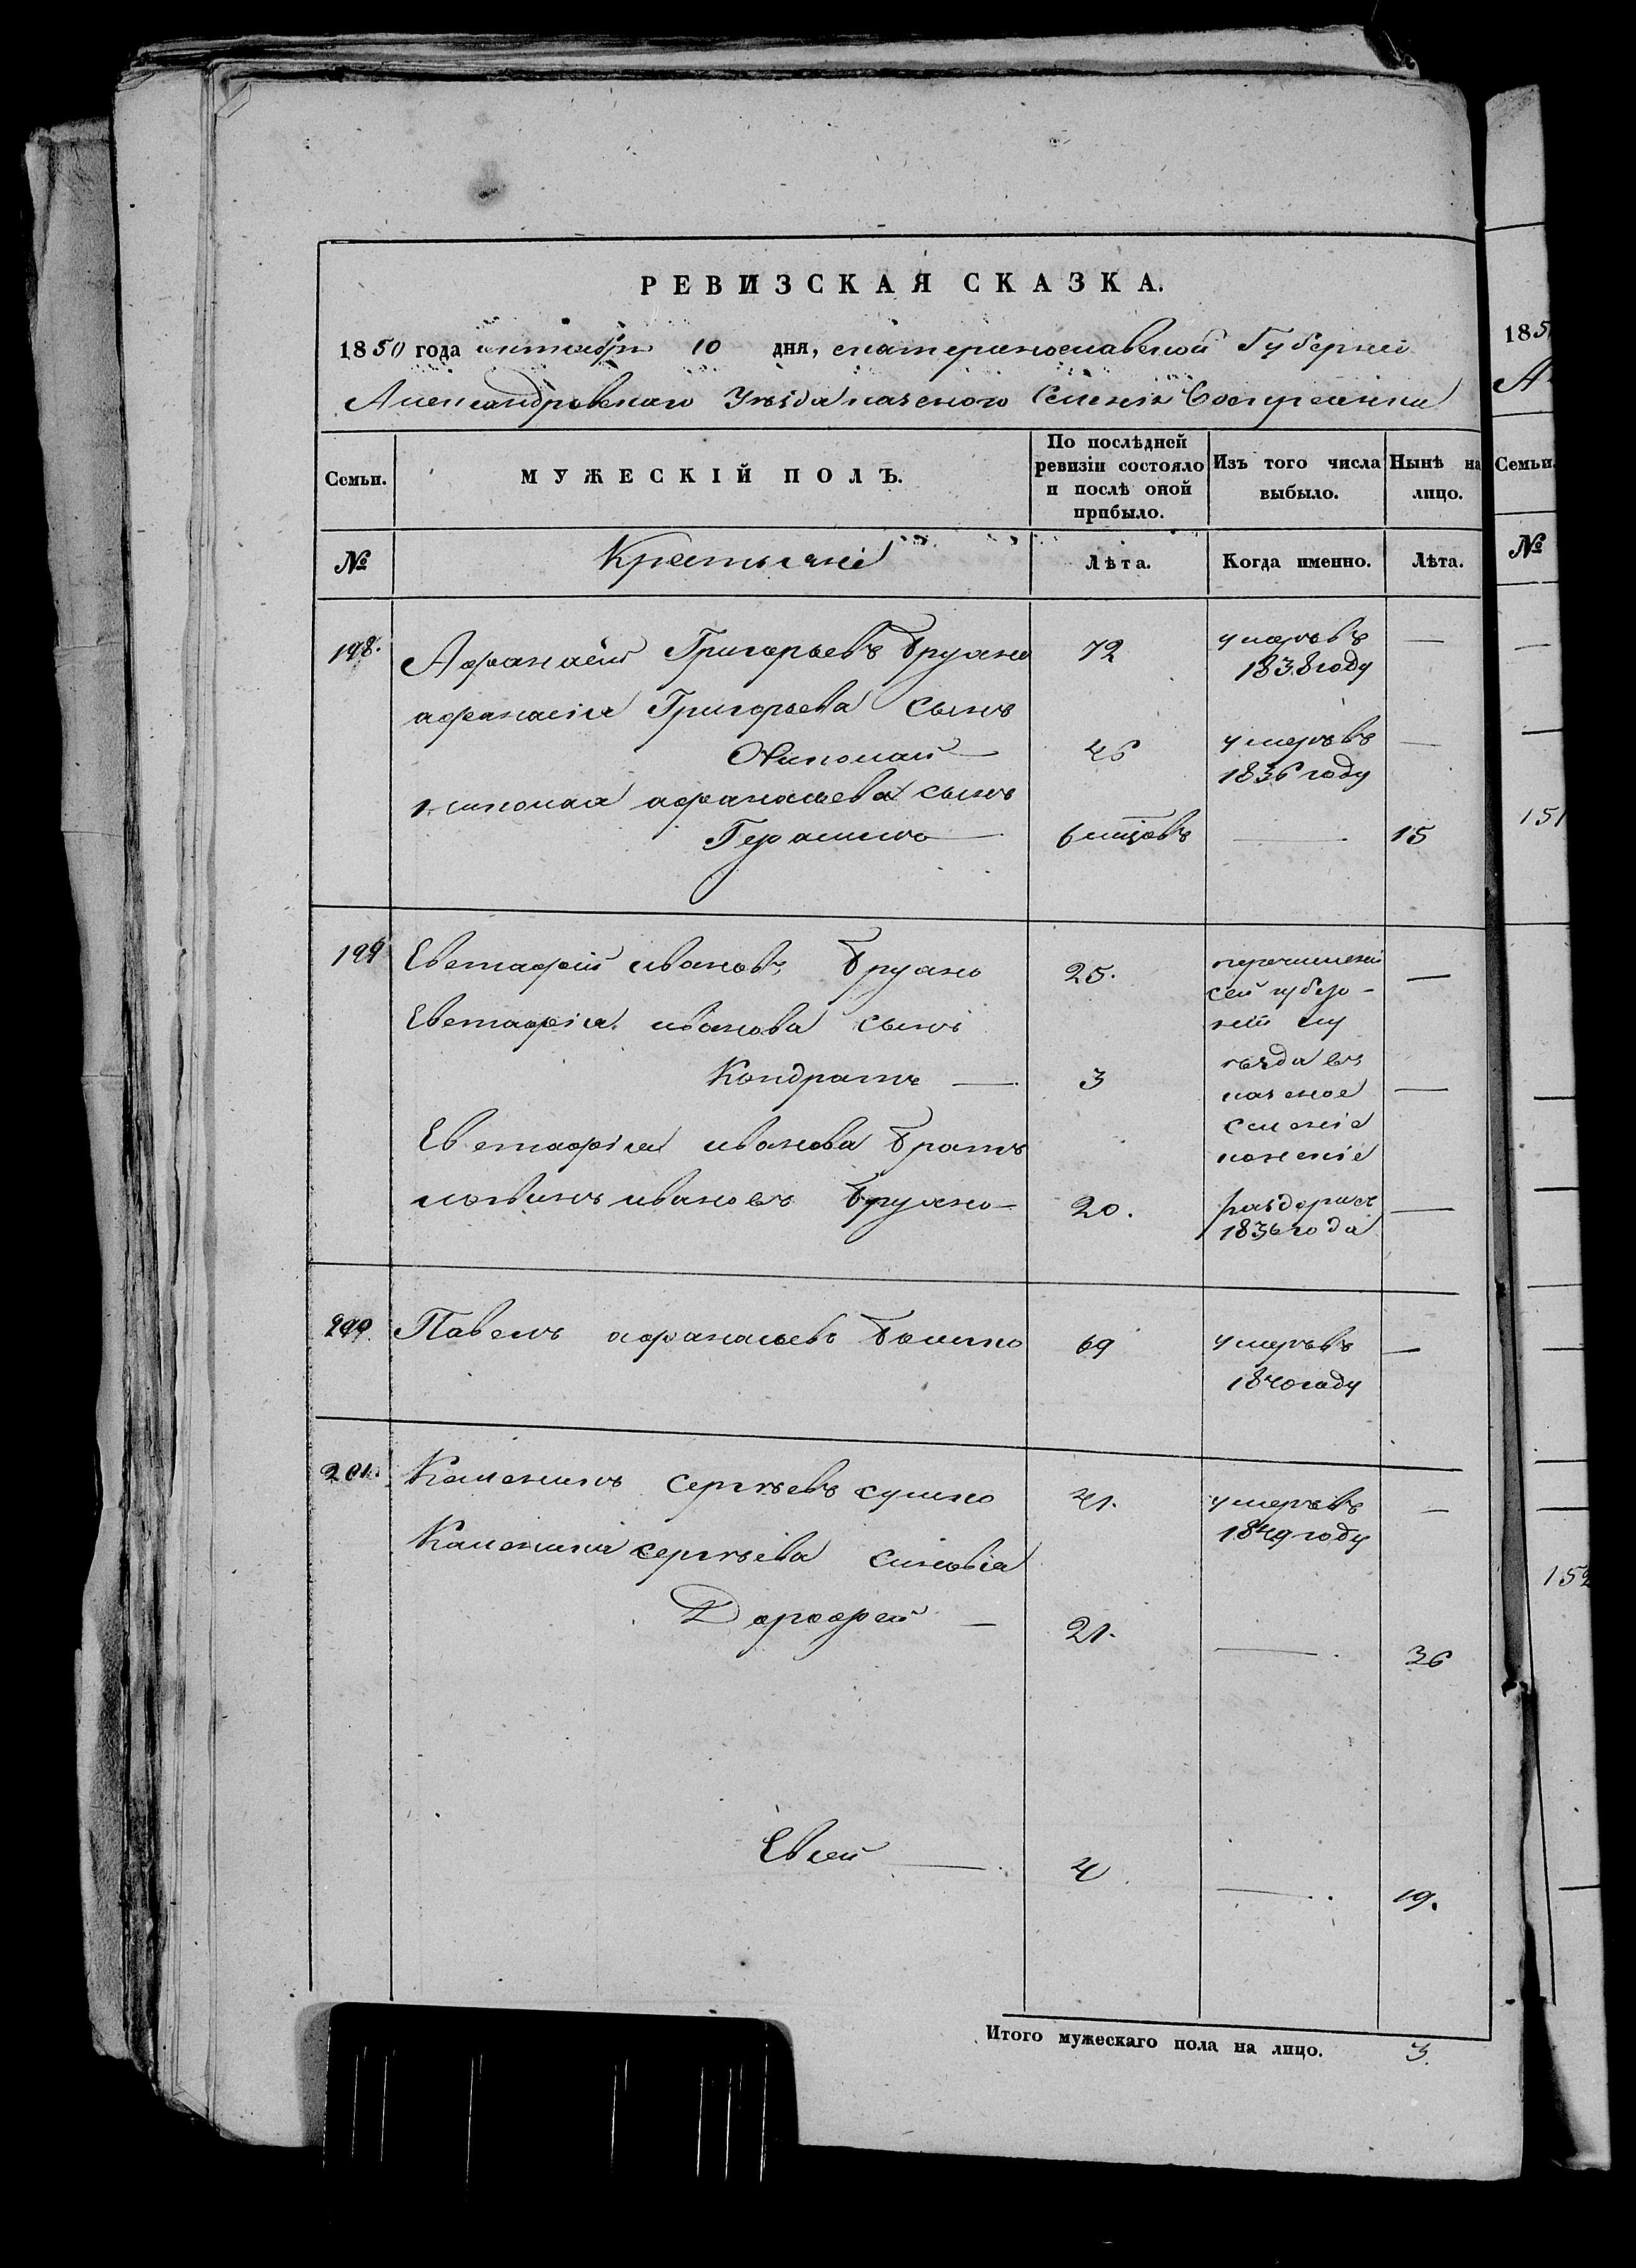 РЕВИЗСКАЯ СКАЗКА.
1850 года октября 10 дня, екатеринославской Губерніи
Александровскаго Уѣзда казеного Селенія Воскресенки
Семьи.
МУЖЕСКІЙ ПОЛЪ.
По послѣдней ревизіи состояло и послѣ оной прибыло.
Изъ того числа выбыло.
Нынѣ на лицо.
№
Крестьяне
Лѣта.
Когда именно.
Лѣта.
198. Афанасій Григорьевъ Брухно 72 умеръ въ —
1838 году
афанасія Григорьева сынъ
Николай — 46 умеръ въ —
1836 году
николая афанасьева сынъ
Герасимъ — 6 мцовъ — 15
199 Евстафій ивановъ Брухно 25. перечислены —
сей губер-
Евстафія иванова сынъ ніи
Кондратъ — 3 уѣзда въ —
казеное
Евстафія иванова братъ селеніе
логвинъ ивановъ Брухно — 20. —
1836 года
200. Павелъ афанасьевъ 69 умеръ въ —
1840 году
201. Каленикъ Сергѣевъ сушко 41. умеръ въ —
1849 году
Калиника сергѣева синовія
Дорофей — 21. — 36
Евсей — 4 — 19.
Итого мужескаго пола на лицо. 3.
185
А
Семьи.
№
151
152